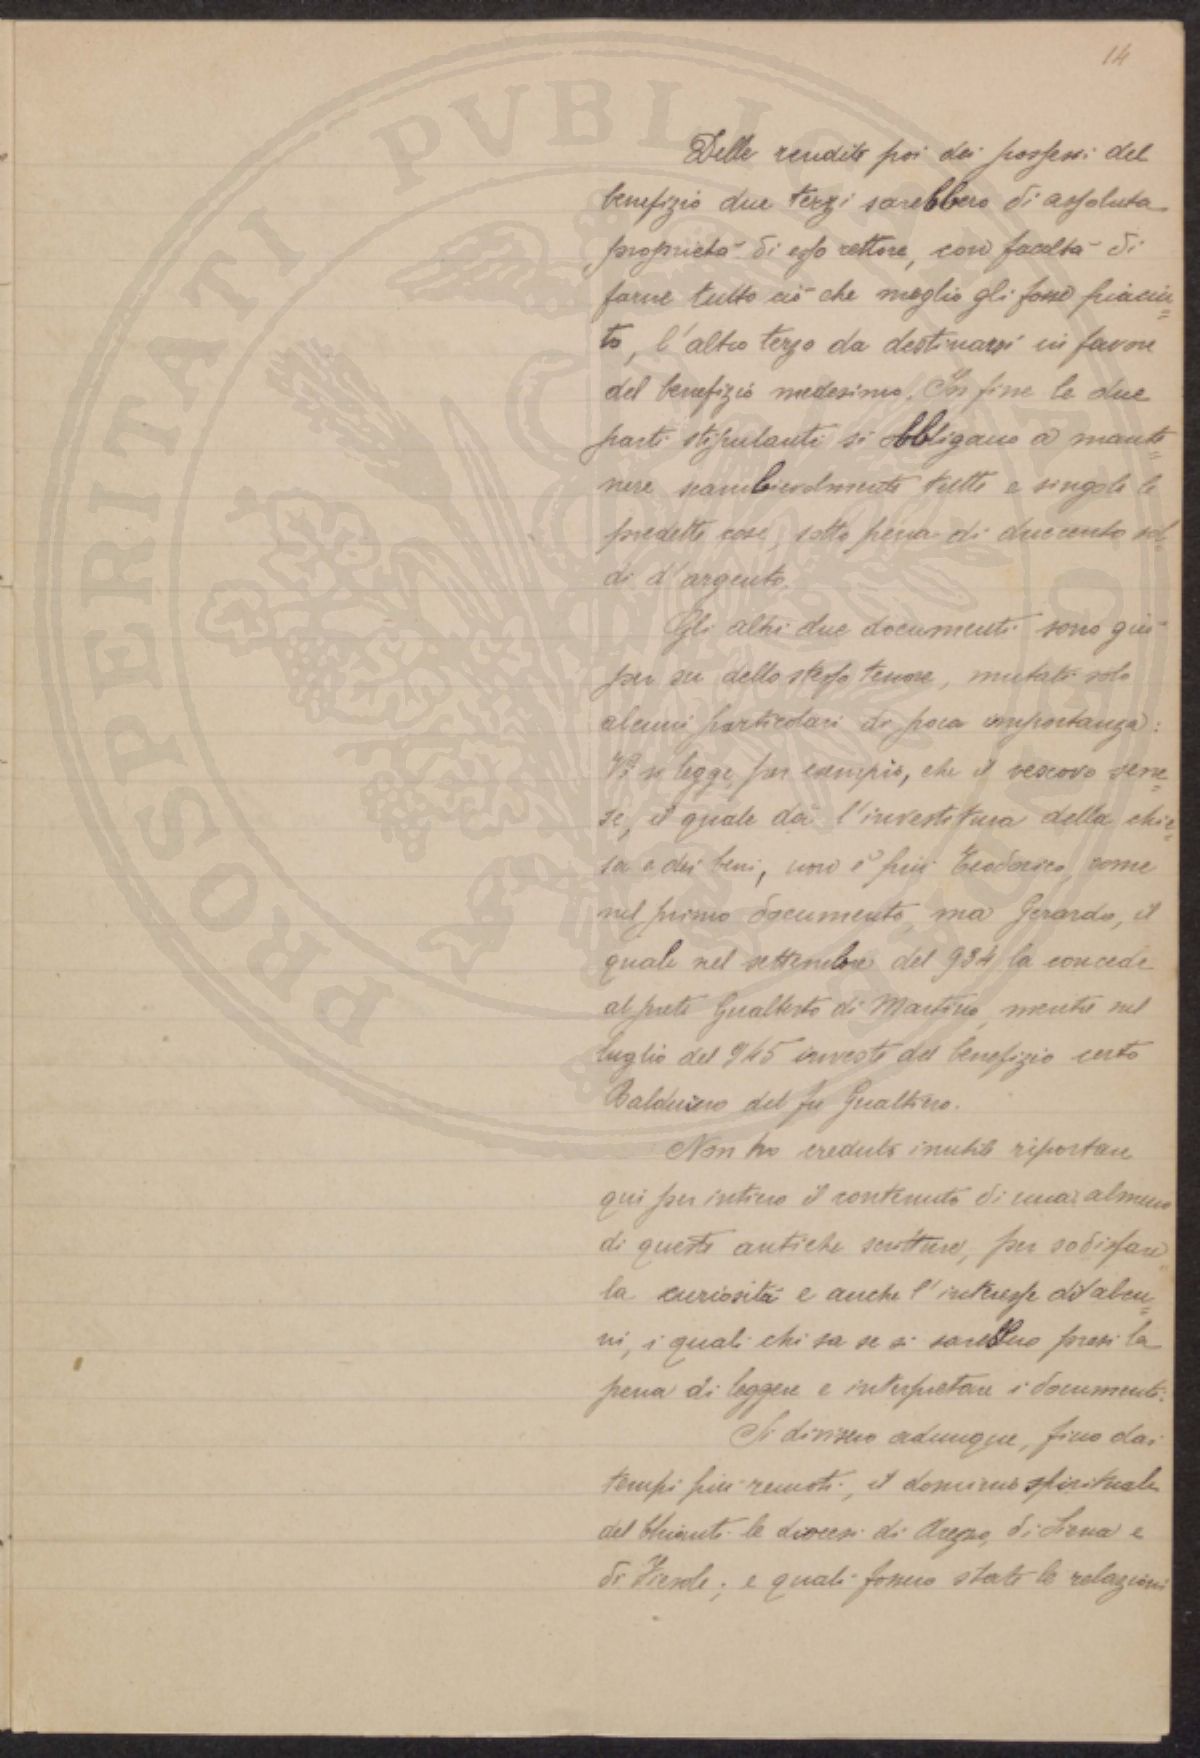 14
Delle rendite poi dei possessi del
benefizio due terzi sarebbero di assoluta
proprietà di esso rettore, con facoltà di
farne tutto ciò che meglio gli fosse piaciu=
to, l'altro terzo da destinarsi in favore
del benefizio medesimo. In fine le due
parti stipulanti si obbligano a mante=
nere scambievolmente tutte e singole le
predette cose, sotto pena di duecento sol=
di d'argento.
Gli altri due documenti sono giù
per su dello stesso tenore, mutati solo
alcuni particolari di poca importanza:
Vi si legge, per esempio, che il vescovo sene=
se, il quale dà l'investitura della chie=
sa e dei beni, non è più Teodorico, come
nel primo documento, ma Gerardo, il
quale nel settembre del 934 la concede
al prete Gualberto di Martino, mentre nel
luglio del 945 investe del benefizio certo
Balduino del fu Gualtiero.
Non ho creduto inutile riportare
qui per intiero il contenuto di una almeno
di queste antiche scritture, per sodisfare
la curiosità e anche l'interesse di alcu=
ni, i quali chi sa se si sarebbero presi la
pena di leggere e interpretare i documenti.
Si divisero adunque, fino dai
tempi più remoti, il dominio spirituale
del Chianti le diocesi di Arezzo, di Siena e
di Fiesole; e quali fossero state le relazioni
PROSPERITATI PVBLICAE